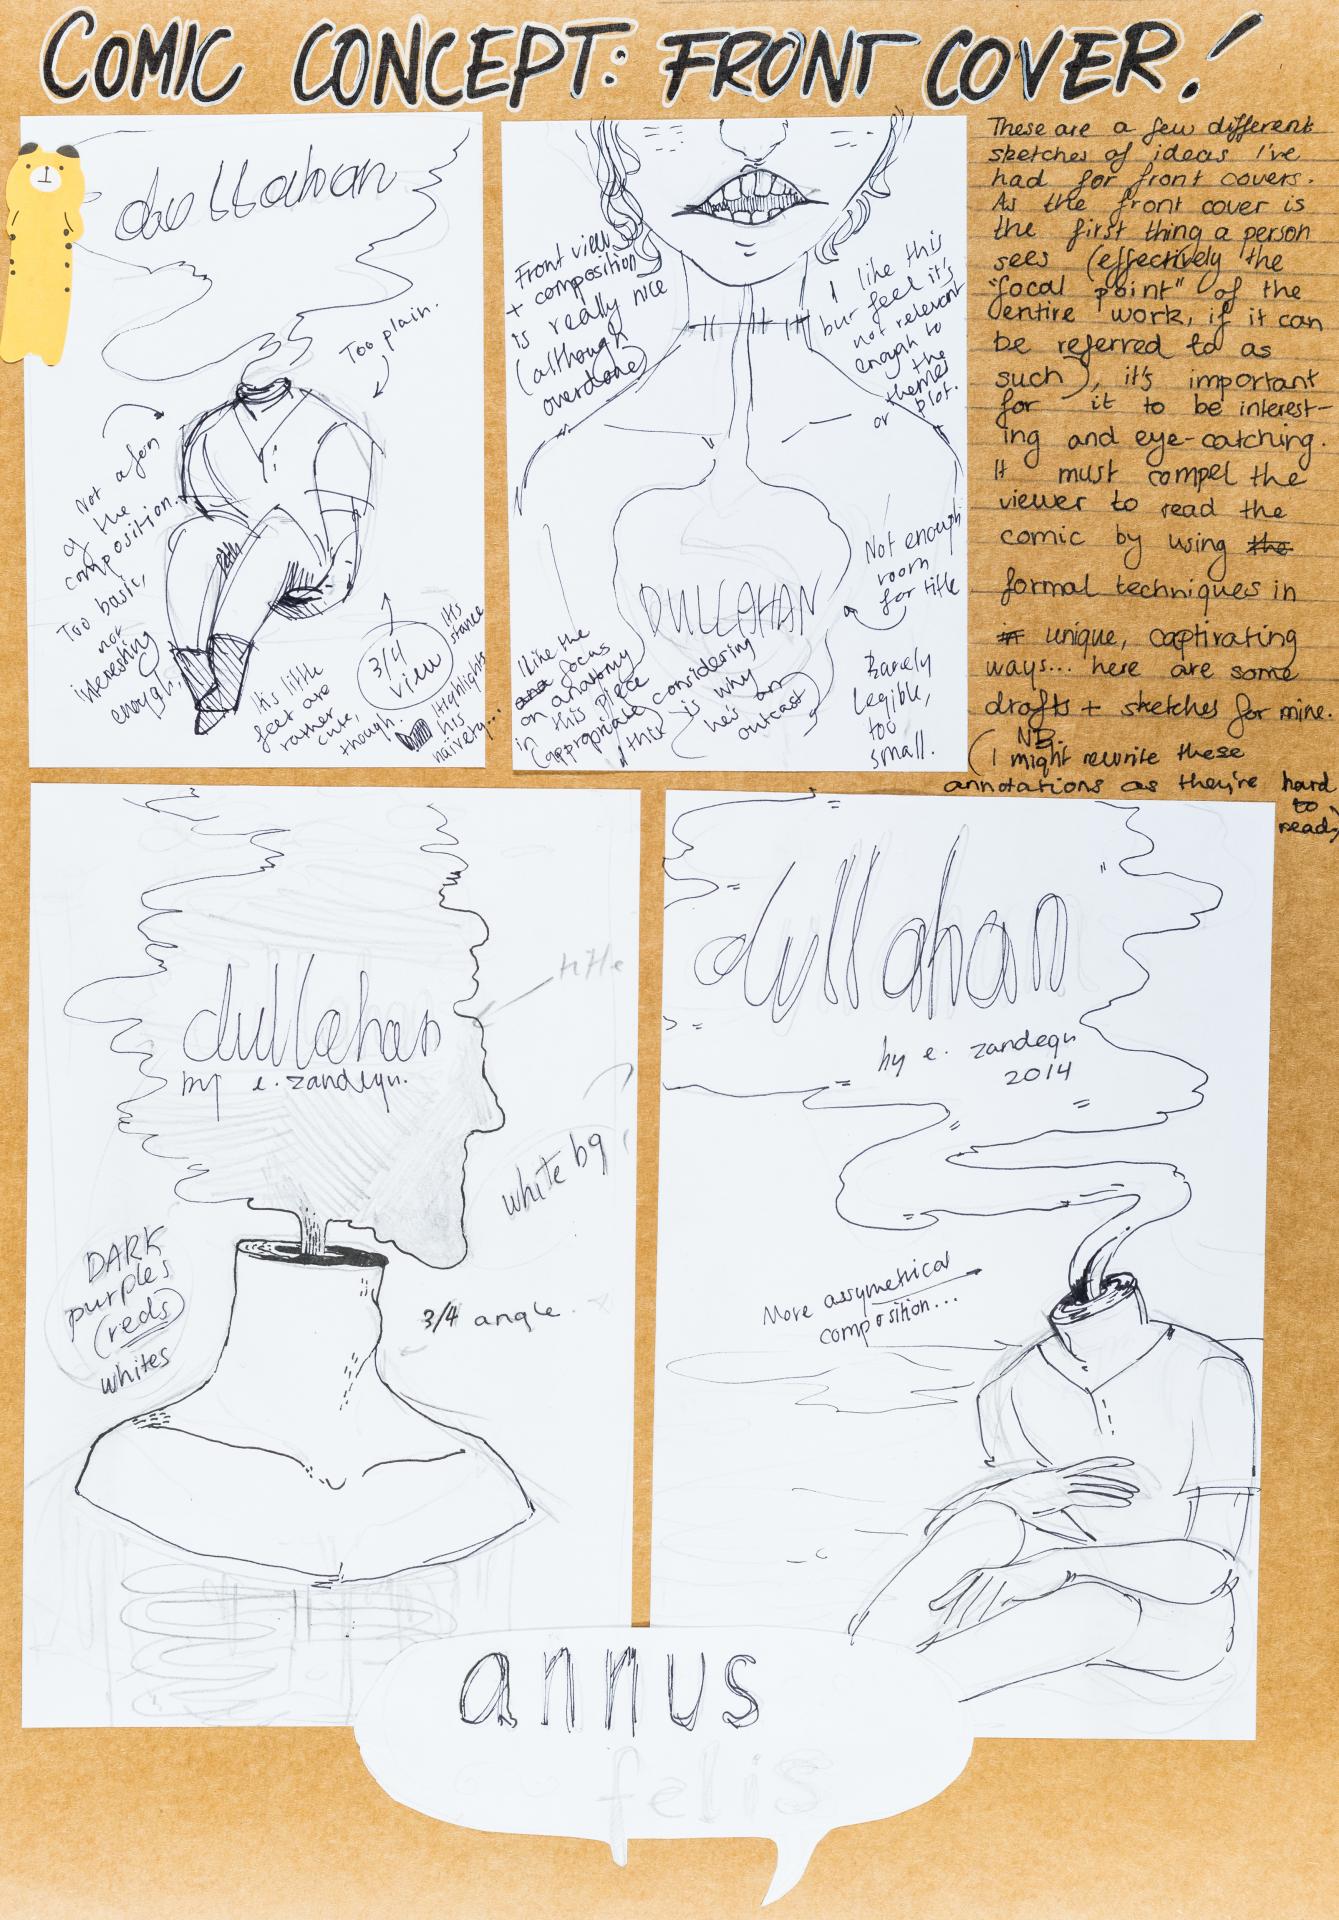 COMIC CONCEPT: FRONT COVER!
dullahan
Too plain.
Not a fan
of the
composition.
Too basic,
not
interesting
enough.
It's little
feet are
rather
cute,
though.
3/4
view
It's
stance
Highlights
his
naivety...
Front view
+ composition
is really nice
(although
overdone)
I like this
but feel it's
not relevant
enough to
the
themes
or plot.
Not enough
room
for title
DULLAHAN
I like the
focus
on anatomy
in this piece
(appropriate considering
I think is why
he's an
outcast)
Barely
legible,
too
small.
These are a few different
sketches of ideas I've
had for front covers.
As the front cover is
the first thing a person
sees (effectively the
"focal point" of the
entire work, if it can
be referred to as
such), it's important
for it to be interest-
ing and eye-catching.
It must compel the
viewer to read the
comic by using the
formal techniques in
unique, captivating
ways... here are some
drafts + sketches for mine.
NB.
(I might rewrite these
annotations as they're hard
to
read)
dullahan
by e. zandequ.
title
white bg
DARK
purples
(reds)
whites
3/4 angle.
dullahan
by e. zandequ
2014
More assymetrical
composition...
annus
felis